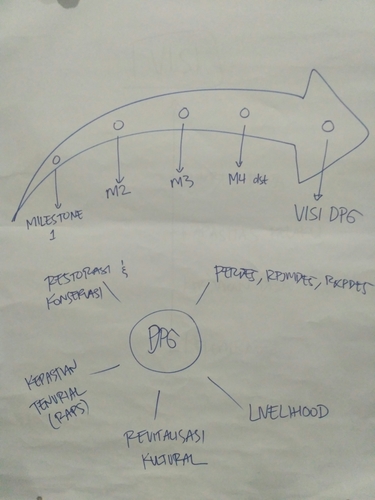 MILESTONE
1
M2
M3
M4 dst
VISI DPG
RESTORASI &
KONSERVASI
PERDES, RPJMDES, RKPDES
DPG
KEPASTIAN
TENURIAL
(RAPS)
LIVELIHOOD
REVITALISASI
KULTURAL